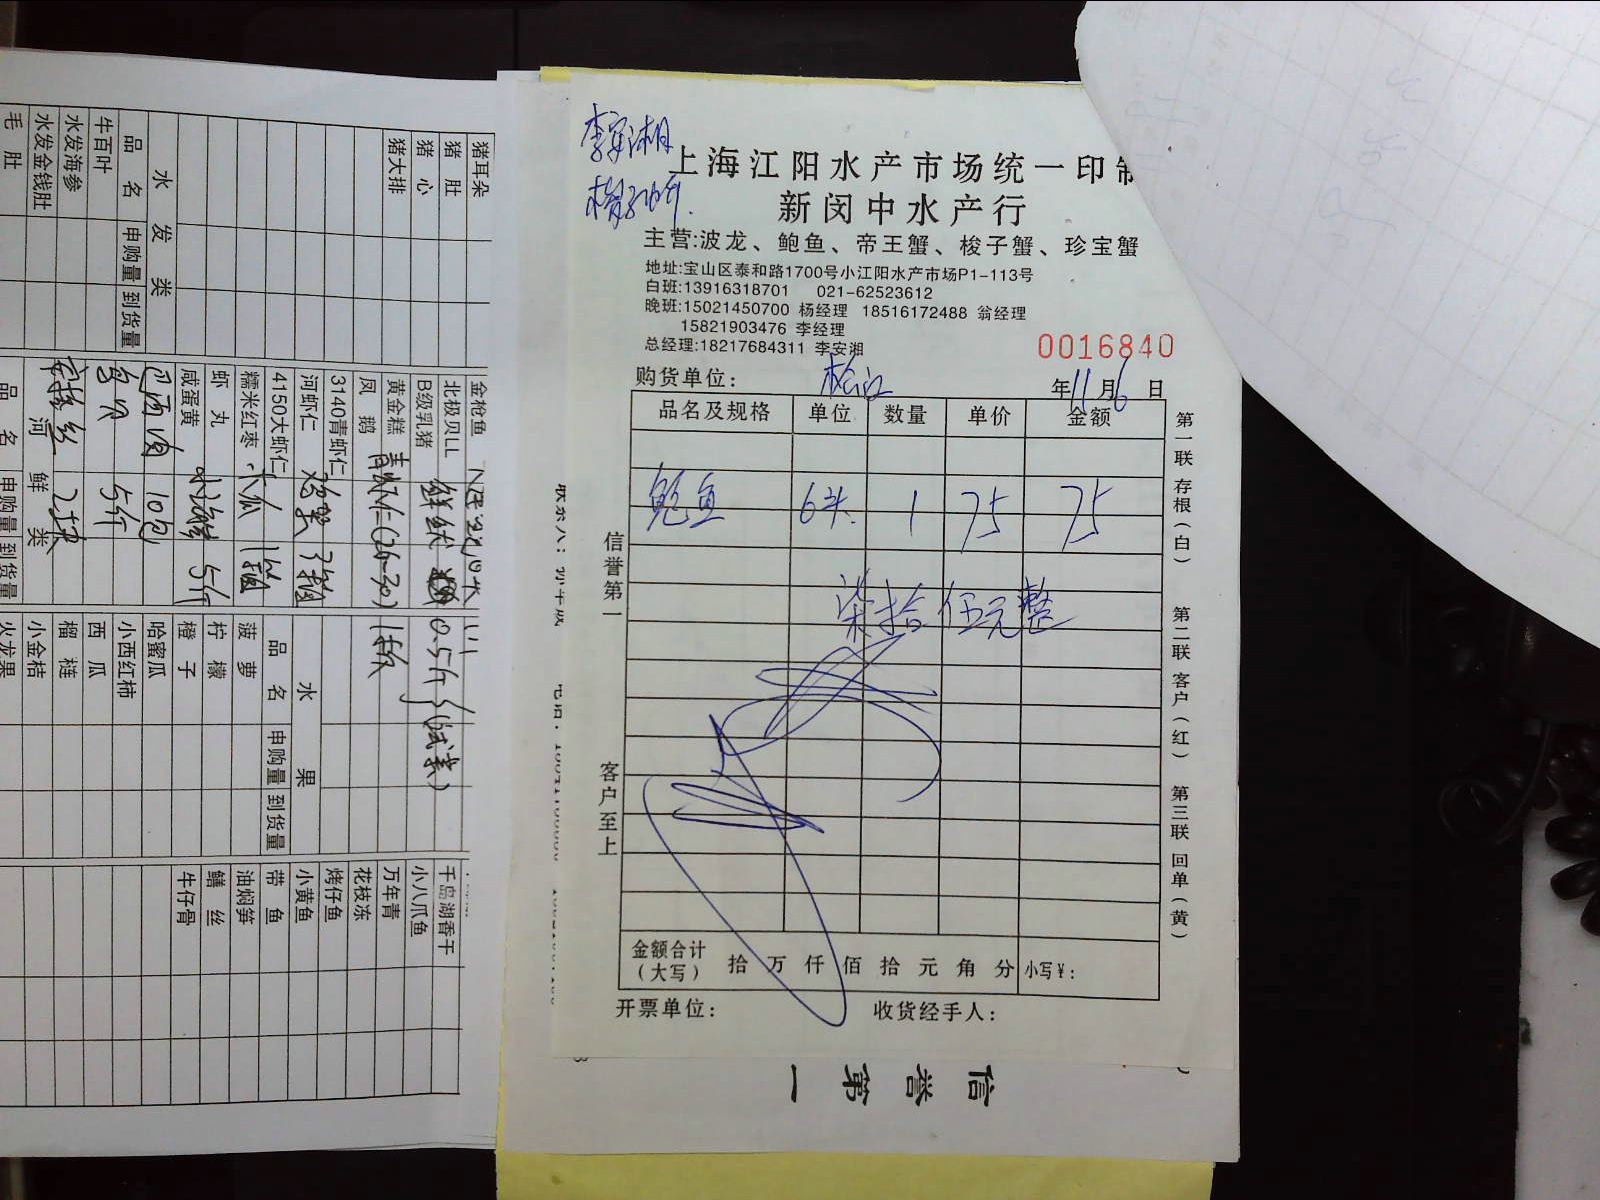 李安湘
上海江阳水产市场统一印制
新闵中水产行
主营:波龙、鲍鱼、帝王蟹、梭子蟹、珍宝蟹
地址:宝山区泰和路1700号小江阳水产市场P1-113号
白班:13916318701 021-62523612
晚班:15021450700 杨经理 18516172488 翁经理
15821903476 李经理
总经理:18217684311 李安湘
0016840
购货单位: 松江 年11月6日
品名及规格 单位 数量 单价 金额
鲍鱼 6头 1 75 75
柒拾伍元整
金额合计(大写) 拾 万 仟 佰 拾 元 角 分 小写¥:
开票单位: 收货经手人:
信誉第一
客户至上
第一联 存根(白)
第二联 客户(红)
第三联 回单(黄)
信誉第一
猪耳朵
猪肚
猪心
猪大排
水发类
品名 申购量 到货量
牛百叶
水发海参
水发金钱肚
毛肚
金枪鱼
北极贝LL
B级乳猪
黄金糕 青虾仁(26-30) 1板
凤鹅
3140青虾仁
河虾仁
4150大虾仁
糯米红枣
虾丸
咸蛋黄
10包
5斤
2块
0.5斤
河鲜类
品名 申购量 到货量
水果
品名 申购量 到货量
菠萝
柠檬
橙子
哈蜜瓜
小西红柿
西瓜
榴梿
小金桔
火龙果
千岛湖香干
小八爪鱼
万年青
花枝冻
烤仔鱼
小黄鱼
带鱼
油焖笋
鳝丝
牛仔骨